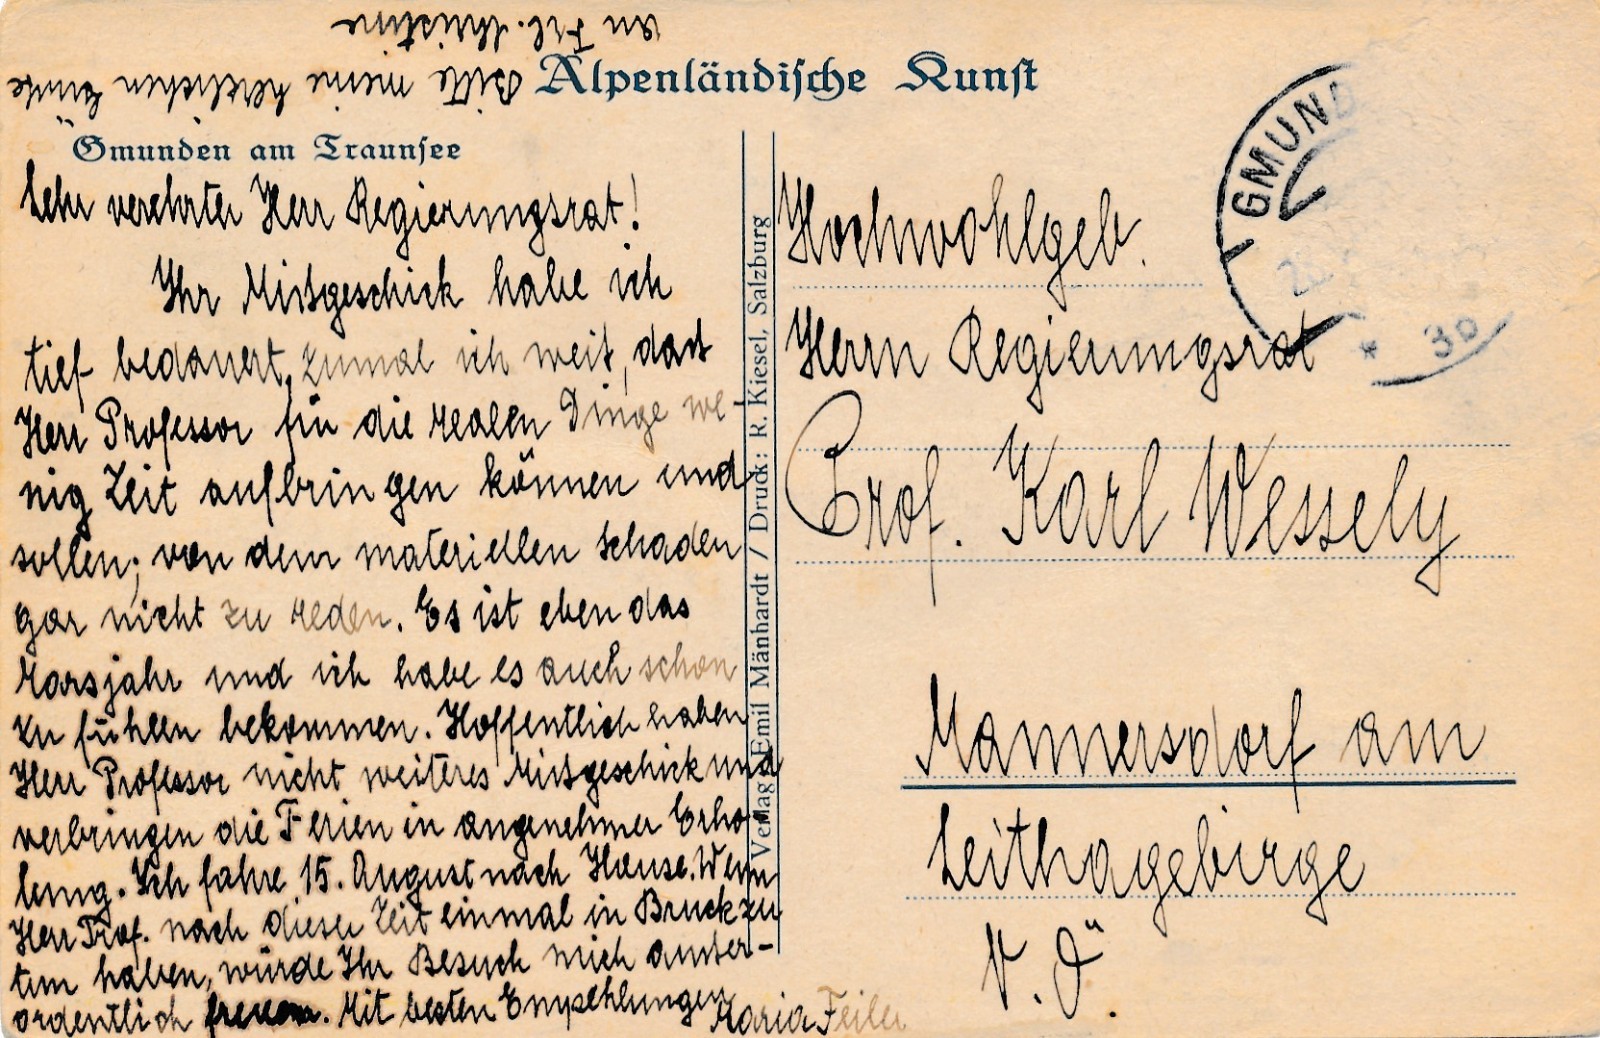 Bitte meine herzlichen Grüße
an Frl. Christine
Alpenländische Kunst
Gmunden am Traunsee
Sehr verehrter Herr Regierungsrat!
Ihr Missgeschick habe ich
tief bedauert, zumal ich weiß, dass
Herr Professor für die realen Dinge we-
nig Zeit aufbringen können und
sollen; von dem materiellen Schaden
gar nicht zu reden. Es ist eben das
Marsjahr und ich habe es auch schon
zu fühlen bekommen. Hoffentlich haben
Herr Professor nicht weiteres Missgeschick und
verbringen die Ferien in angenehmer Erho-
lung. Ich fahre 15. August nach Hause. Wenn
Herr Prof. nach dieser Zeit einmal in Bruck zu
tun haben, würde Ihr Besuch mich außer-
ordentlich freuen. Mit besten Empfehlungen
Maria Feiler
Verlag: Emil Mänhardt / Druck: R. Kiesel, Salzburg
GMUND
* 30
Hochwohlgeb.
Herrn Regierungsrat
Prof. Karl Wessely
Mannersdorf am
Leithagebirge
N.Ö.